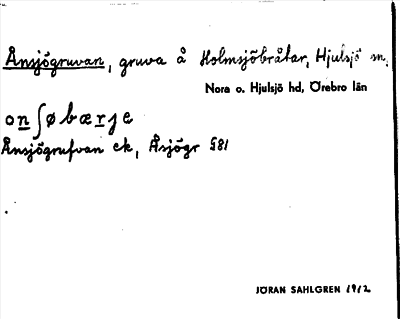 Ånsjögruvan, gruva å Holmsjöbråtar, Hjulsjö sn.
Nora o. Hjulsjö hd, Örebro län
onʃøbærje
Ånsjögrufvan ek, Åsjögr 581
JÖRAN SAHLGREN 1912